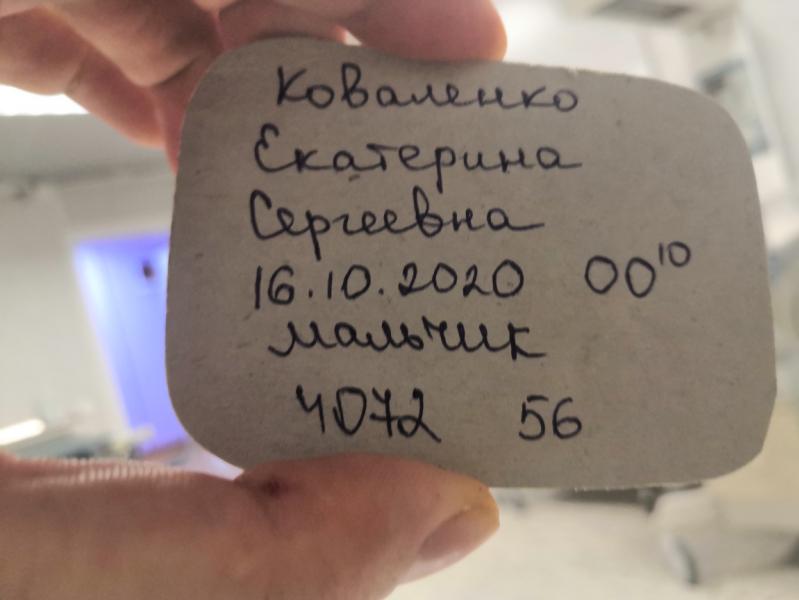 Коваленко
Екатерина
Сергеевна
16.10.2020 00¹⁰
мальчик
4072 56